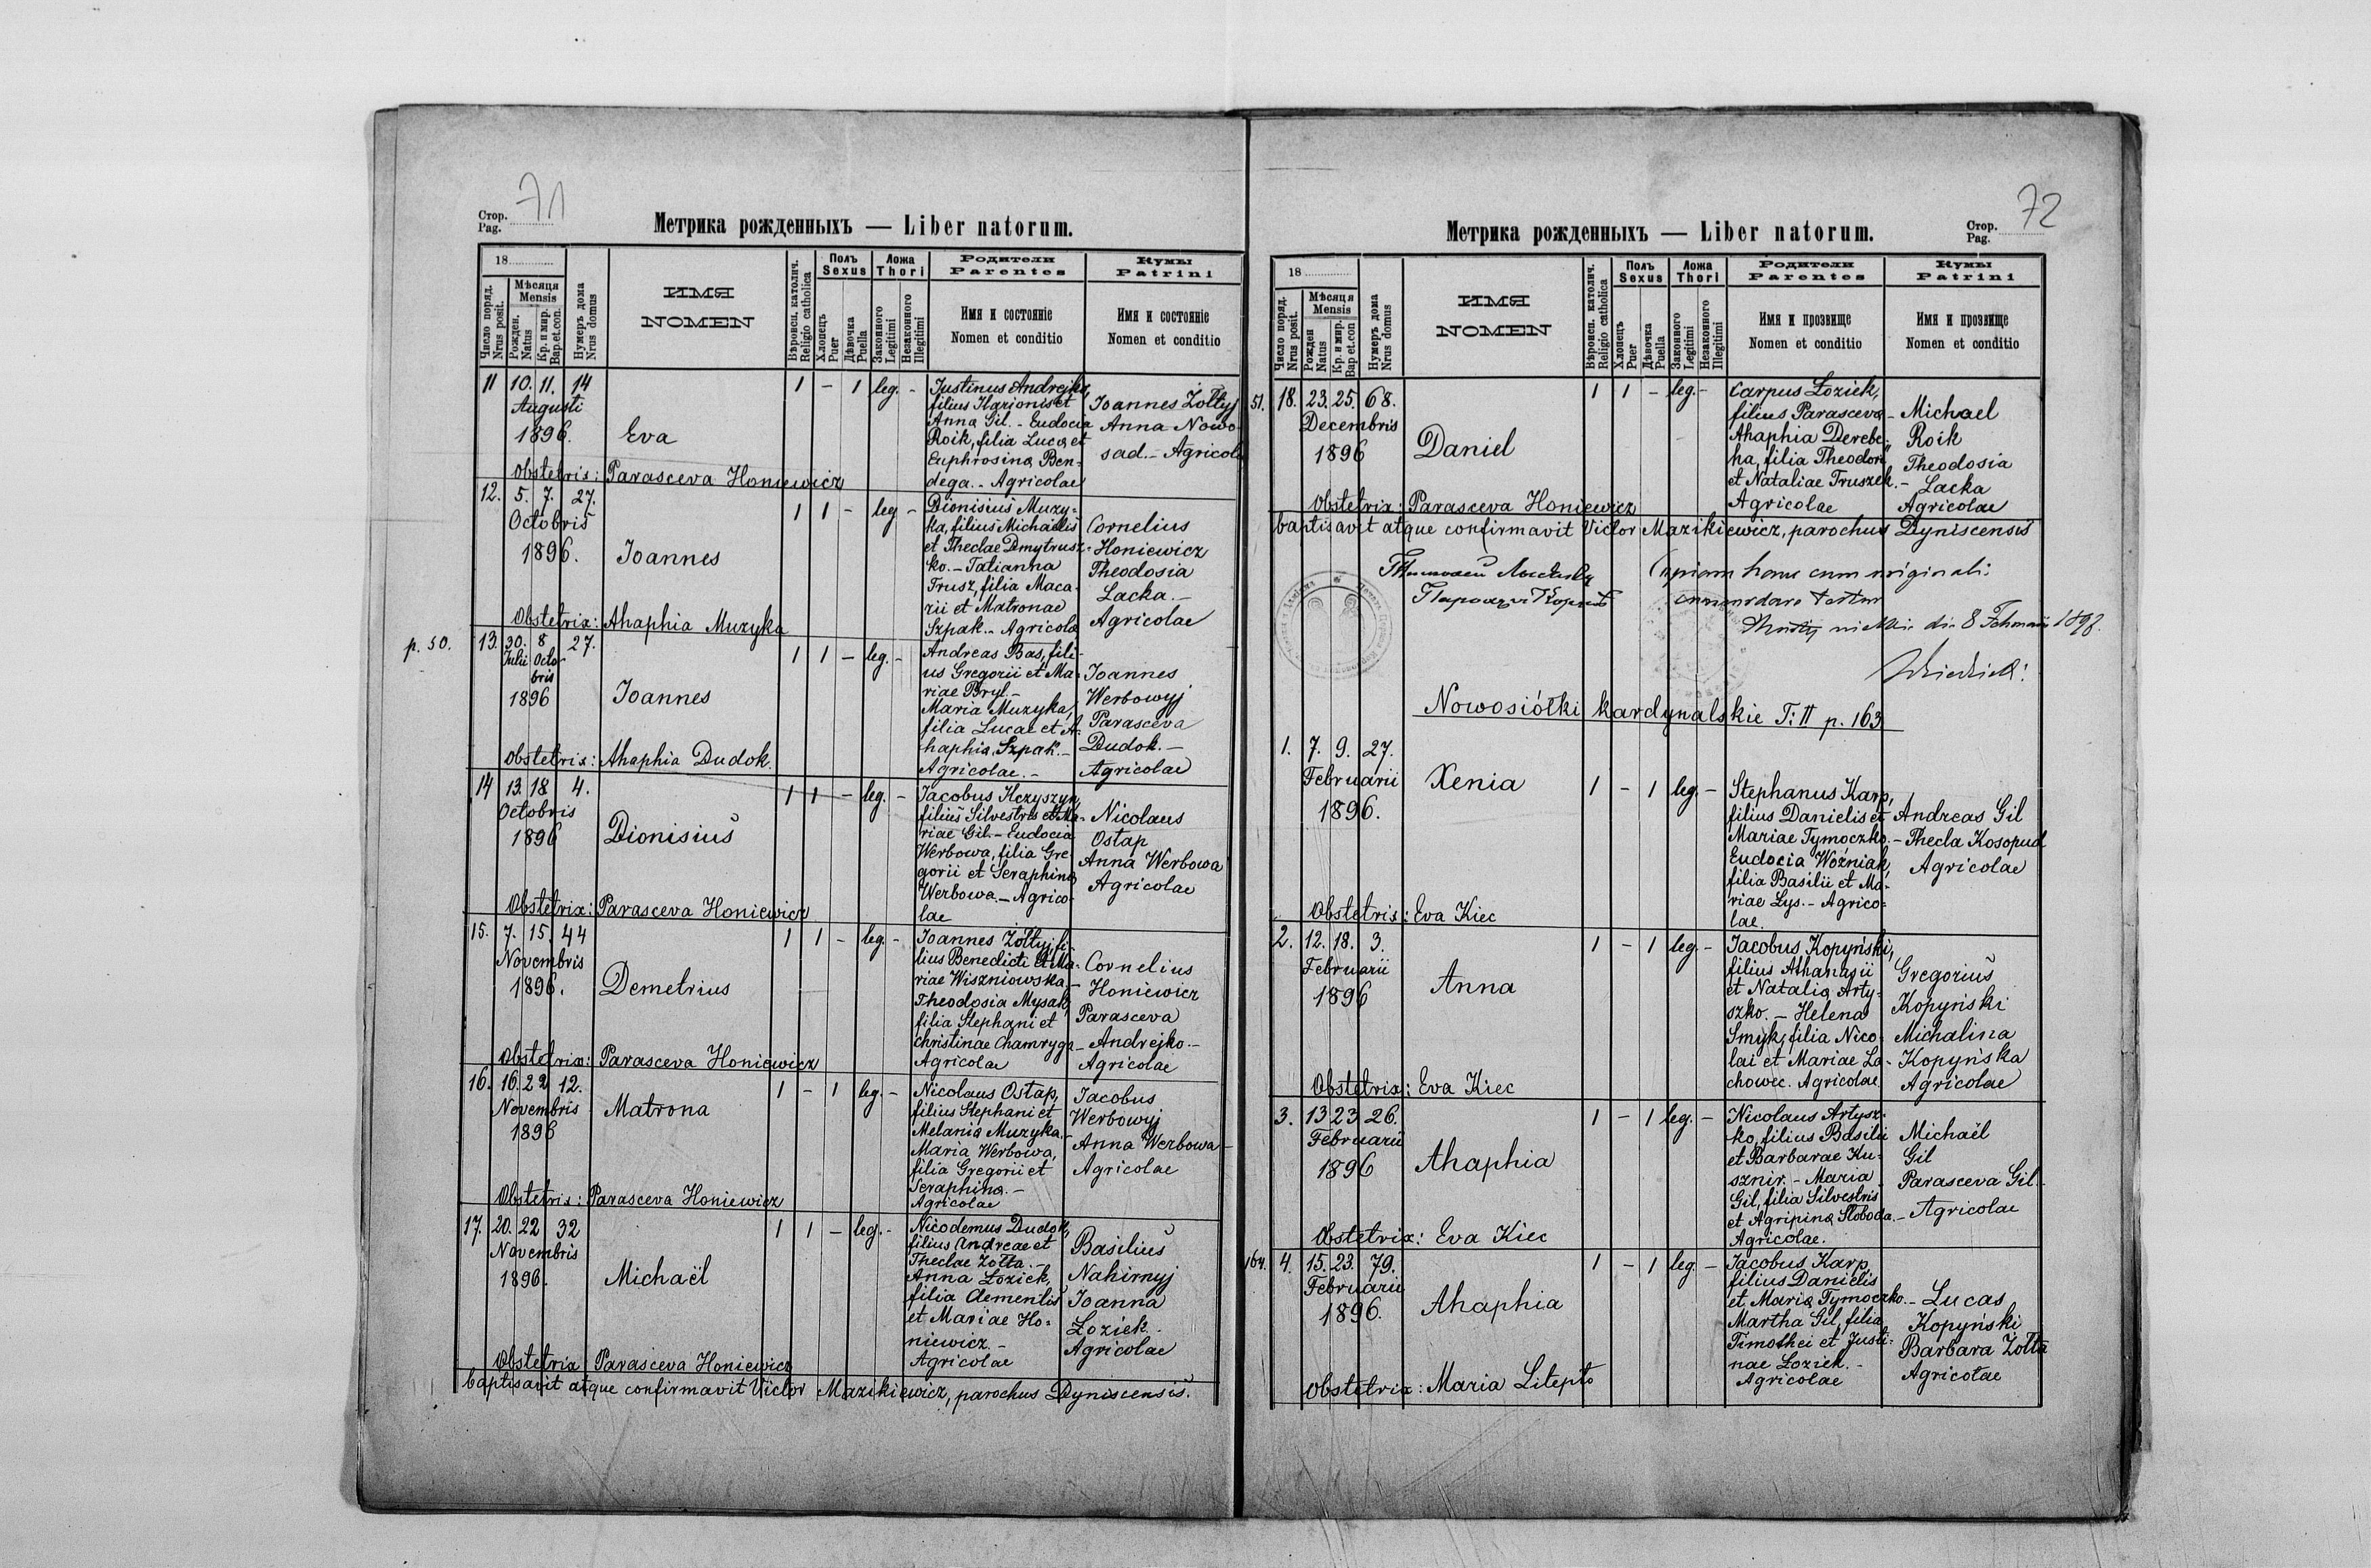 71
Стор.
Pag.
Метрика рожденныхъ — Liber natorum.
18
Число поряд.
Nrus posit.
Мѣсяця
Mensis
Рожден.
Natus
Кр. и мир.
Bap.et.con.
Нумеръ дома
Nrus domus
ИМЯ
NOMEN
Вѣроисп. католич.
Religio catholica
Полъ
Sexus
Хлопецъ
Puer
Дѣвочка
Puella
Ложа
Thori
Законного
Legitimi
Незаконного
Illegitimi
Родители
Parentes
Имя и состояніе
Nomen et conditio
Кумы
Patrini
Имя и состояніе
Nomen et conditio
11 10. 11. 14
Augusti
1896.
Eva
1 - 1 leg. -
Justinus Andrejko,
filius Ilarionis et
Anna Gil. - Eudocia
Roik, filia Luca et
Euphrosina Ben-
dega. - Agricolae
Joannes Żołtyj
Anna Nowo-
sad. - Agricolae
Obstetrix: Parasceva Honiewicz
12. 5. 7. 27.
Octobris
1896.
Joannes
1 1 - leg -
Dionisius Muzy-
ka, filius Michaelis
et Theclae Dmytrusz-
ko. - Tatianna
Trusz, filia Maca-
rii et Matronae
Szpak. - Agricolae
Cornelius
Honiewicz
Theodosia
Lacka. -
Agricolae
Obstetrix: Ahaphia Muzyka
p. 50.
13. 30. 8 27.
Julii Octo-
bris
1896
Joannes
1 1 - leg. -
Andreas Bas, fili-
us Gregorii et Ma-
riae Bryl. -
Maria Muzyka,
filia Lucae et A-
haphia Szpak. -
Agricolae. -
Joannes
Werbowyj
Parasceva
Dudok. -
Agricolae
Obstetrix: Ahaphia Dudok.
14 13. 18 4.
Octobris
1896
Dionisius
1 1 - leg. -
Jacobus Krzyszyn,
filius Silvestris et Ma-
riae Gil. - Eudocia
Werbowa, filia Gre-
gorii et Seraphina
Werbowa. - Agrico-
lae
Nicolaus
Ostap
Anna Werbowa
Agricolae
Obstetrix: Parasceva Honiewicz
15. 7. 15. 44
Novembris
1896.
Demetrius
1 1 - leg. -
Joannes Żołtyj, fi-
lius Benedicti et Ma-
riae Wiszniowska. -
Theodosia Mysak,
filia Stephani et
Christinae Chamryga -
Agricolae
Cornelius
Honiewicz
Parasceva
Andrejko. -
Agricolae
Obstetrix: Parasceva Honiewicz
16. 16. 22 12.
Novembris
1896
Matrona
1 - 1 leg. -
Nicolaus Ostap,
filius Stephani et
Melania Muzyka. -
Maria Werbowa,
filia Gregorii et
Seraphina. -
Agricolae
Jacobus
Werbowyj
Anna Werbowa -
Agricolae
Obstetrix: Parasceva Honiewicz
17. 20. 22 32
Novembris
1896.
Michaël
1 1 - leg. -
Nicodemus Dudok,
filius Andreae et
Theclae Żołta. -
Anna Łoziek,
filia Clementis
et Mariae Ho-
niewicz. -
Agricolae
Basilius
Nahirnyj
Joanna
Łoziek. -
Agricolae
Obstetrix Parasceva Honiewicz
baptisavit atque confirmavit Victor Mazikiewicz, parochus Dyniscensis.
72
Стор.
Pag.
Метрика рожденныхъ — Liber natorum.
18
Число поряд.
Nrus posit.
Мѣсяця
Mensis
Рожден
Natus
Кр. и мир.
Bap et.con
Нумеръ дома
Nrus domus
ИМЯ
NOMEN
Вѣроисп. католич.
Religio catholica
Полъ
Sexus
Хлопецъ
Puer
Дѣвочка
Puella
Ложа
Thori
Законного
Legitimi
Незаконного
Illegitimi
Родители
Parentes
Имя и прозвище
Nomen et conditio
Кумы
Patrini
Имя и прозвище
Nomen et conditio
51. 18. 23. 25. 68.
Decembris
1896
Daniel
1 1 - leg. -
Carpus Łoziek,
filius Parasceva -
Ahaphia Derebe-
ha, filia Theodori
et Nataliae Truszek. -
Agricolae
Michael
Roik
Theodosia
Lacka
Agricolae
Obstetrix: Parasceva Honiewicz
baptisavit atque confirmavit Victor Mazikiewicz, parochus Dyniscensis
Copiam hanc cum originali
concordare testor
8 1898.
Nowosiółki kardynalskie T: II p. 163
1. 7. 9. 27.
Februarii
1896.
Xenia
1 - 1 leg. -
Stephanus Karp,
filius Danielis et
Mariae Tymoczko. -
Eudocia Woźniak,
filia Basilii et Ma-
riae Lys. - Agrico-
lae.
Andreas Gil
Thecla Kosopud
Agricolae
Obstetrix: Eva Kiec
2. 12. 18. 3.
Februarii
1896
Anna
1 - 1 leg. -
Jacobus Kopyński,
filius Athanasii
et Natalia Arty-
szko. - Helena
Smyk, filia Nico-
lai et Mariae La-
chowec. Agricolae.
Gregorius
Kopyński
Michalina
Kopyńska
Agricolae
Obstetrix: Eva Kiec
3. 13 23 26.
Februarii
1896
Ahaphia
1 - 1 leg. -
Nicolaus Artysz-
ko, filius Basilii
et Barbarae Ku-
sznir. - Maria
Gil, filia Silvestris
et Agripina Sloboda. -
Agricolae.
Michaël
Gil
Parasceva Gil -
Agricolae
Obstetrix: Eva Kiec
164. 4. 15. 23. 79.
Februarii
1896.
Ahaphia
1 - 1 leg -
Jacobus Karp,
filius Danielis
et Maria Tymoczko. -
Martha Gil, filia
Timothei et Justi-
nae Łoziek. -
Agricolae
Lucas
Kopyński
Barbara Żołta
Agricolae
Obstetrix: Maria Litepło